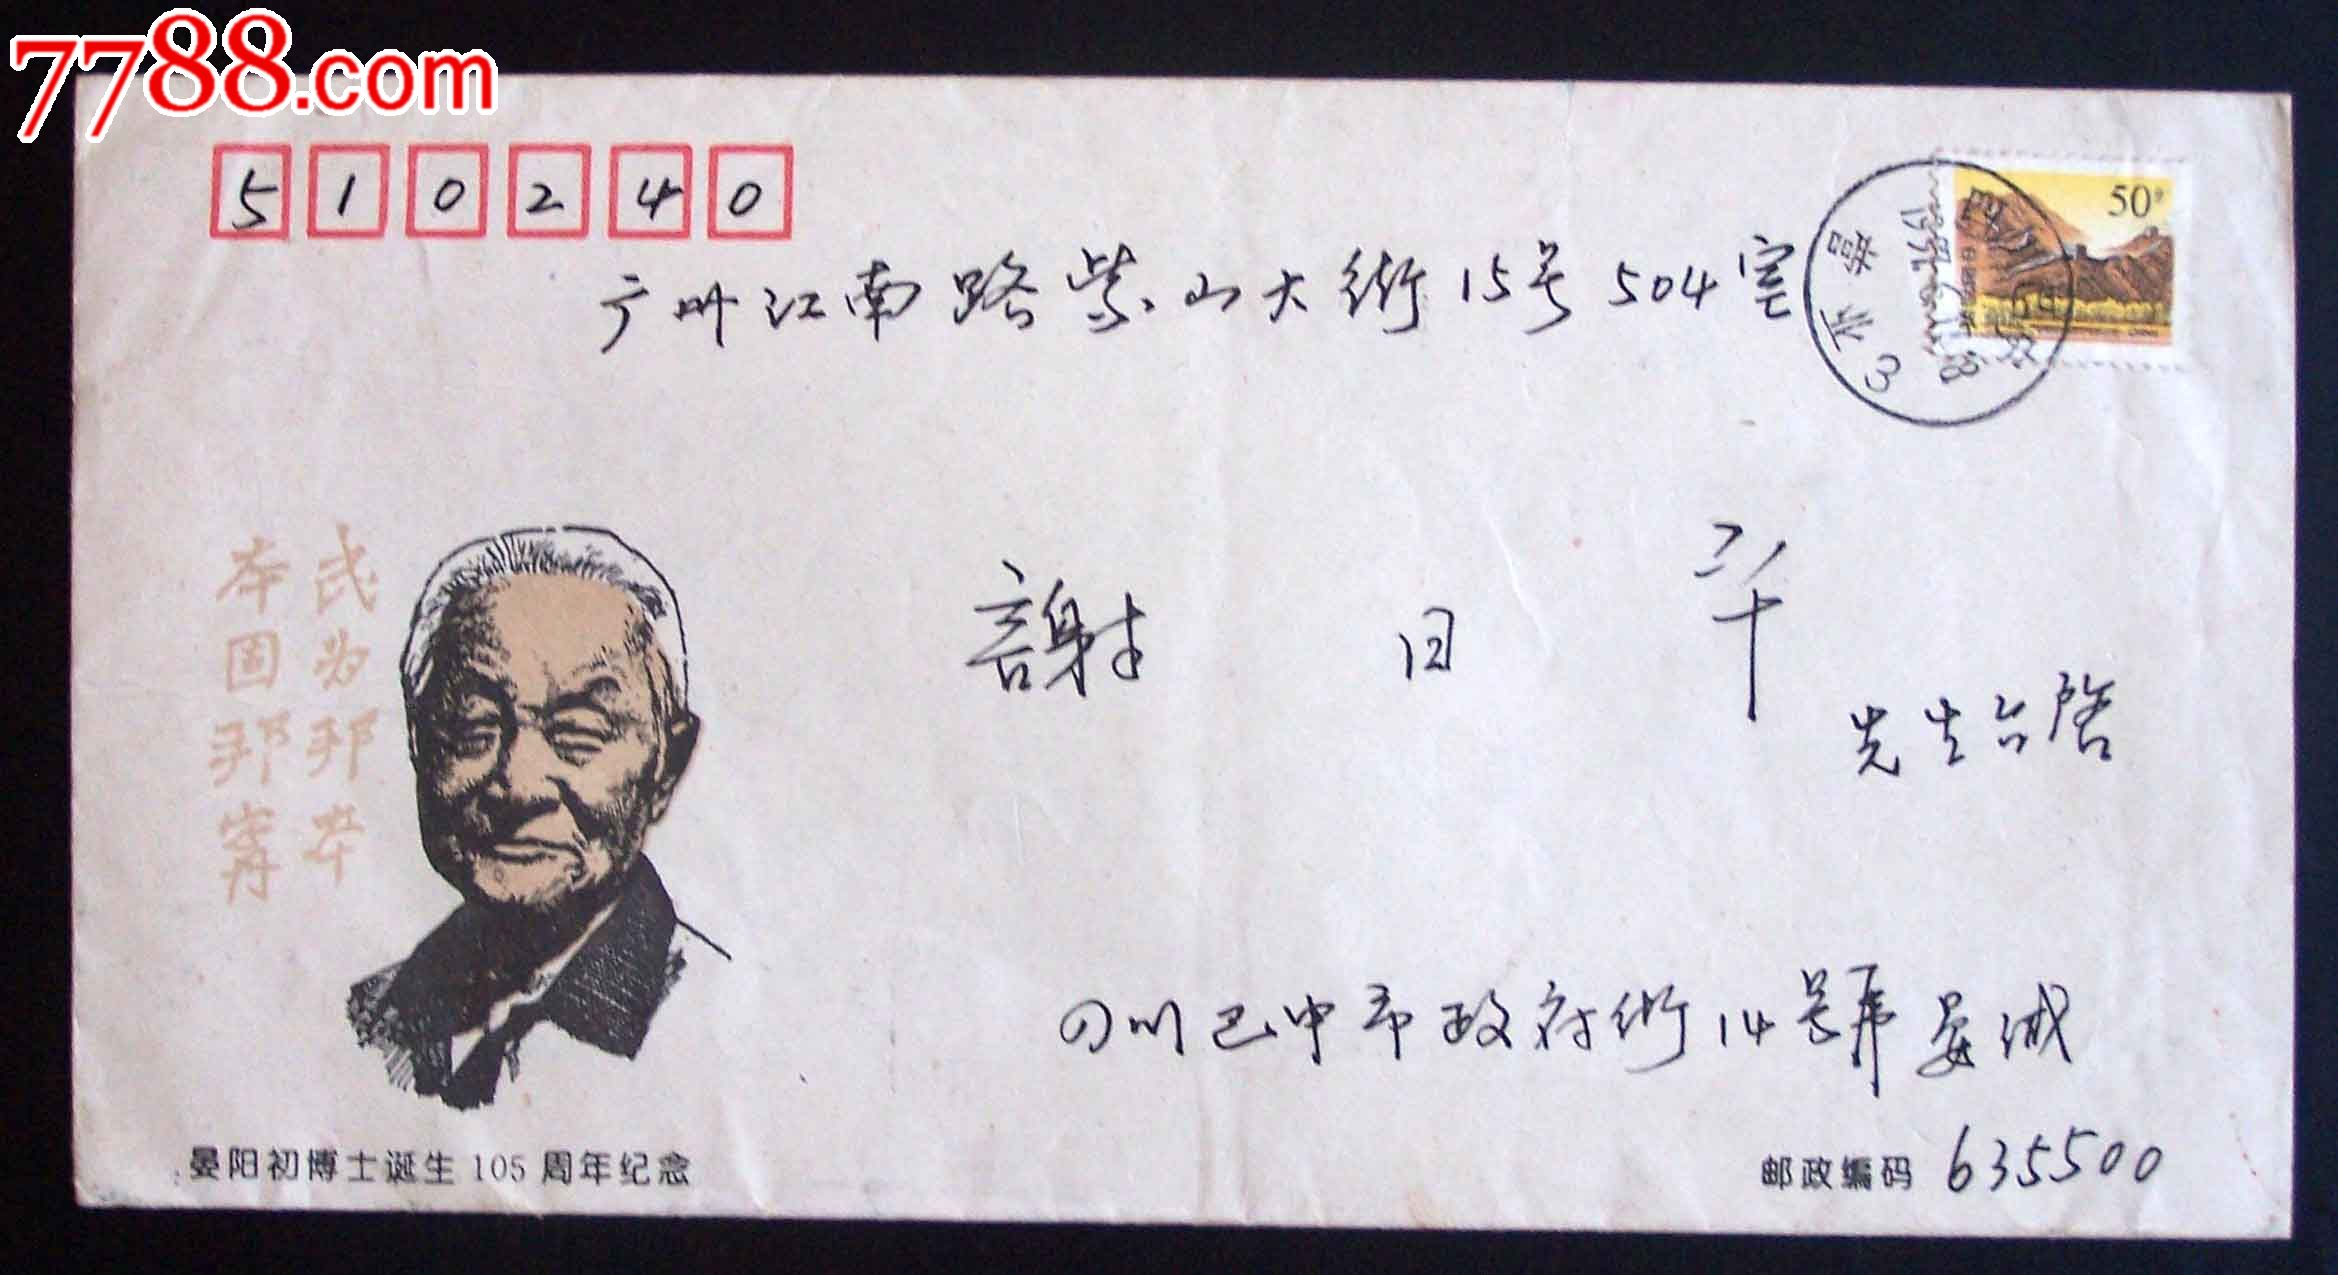 7788.com
510240
50分
广州江南路紫山大街15号504室
谢日平
先生台启
民为邦本
本固邦宁
四川巴中市政府街14號晏
晏阳初博士诞生105周年纪念
邮政编码 635500